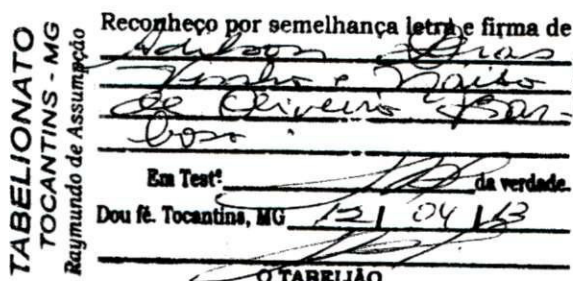 TABELIONATO
TOCANTINS - MG
Raymundo de Assumpção
Reconheço por semelhança letra e firma de
Adilson Dias
e
de Oliveira Bar-
bosa.
Em Testº da verdade.
Dou fé. Tocantins, MG 12 / 04 / 13
O TABELIÃO